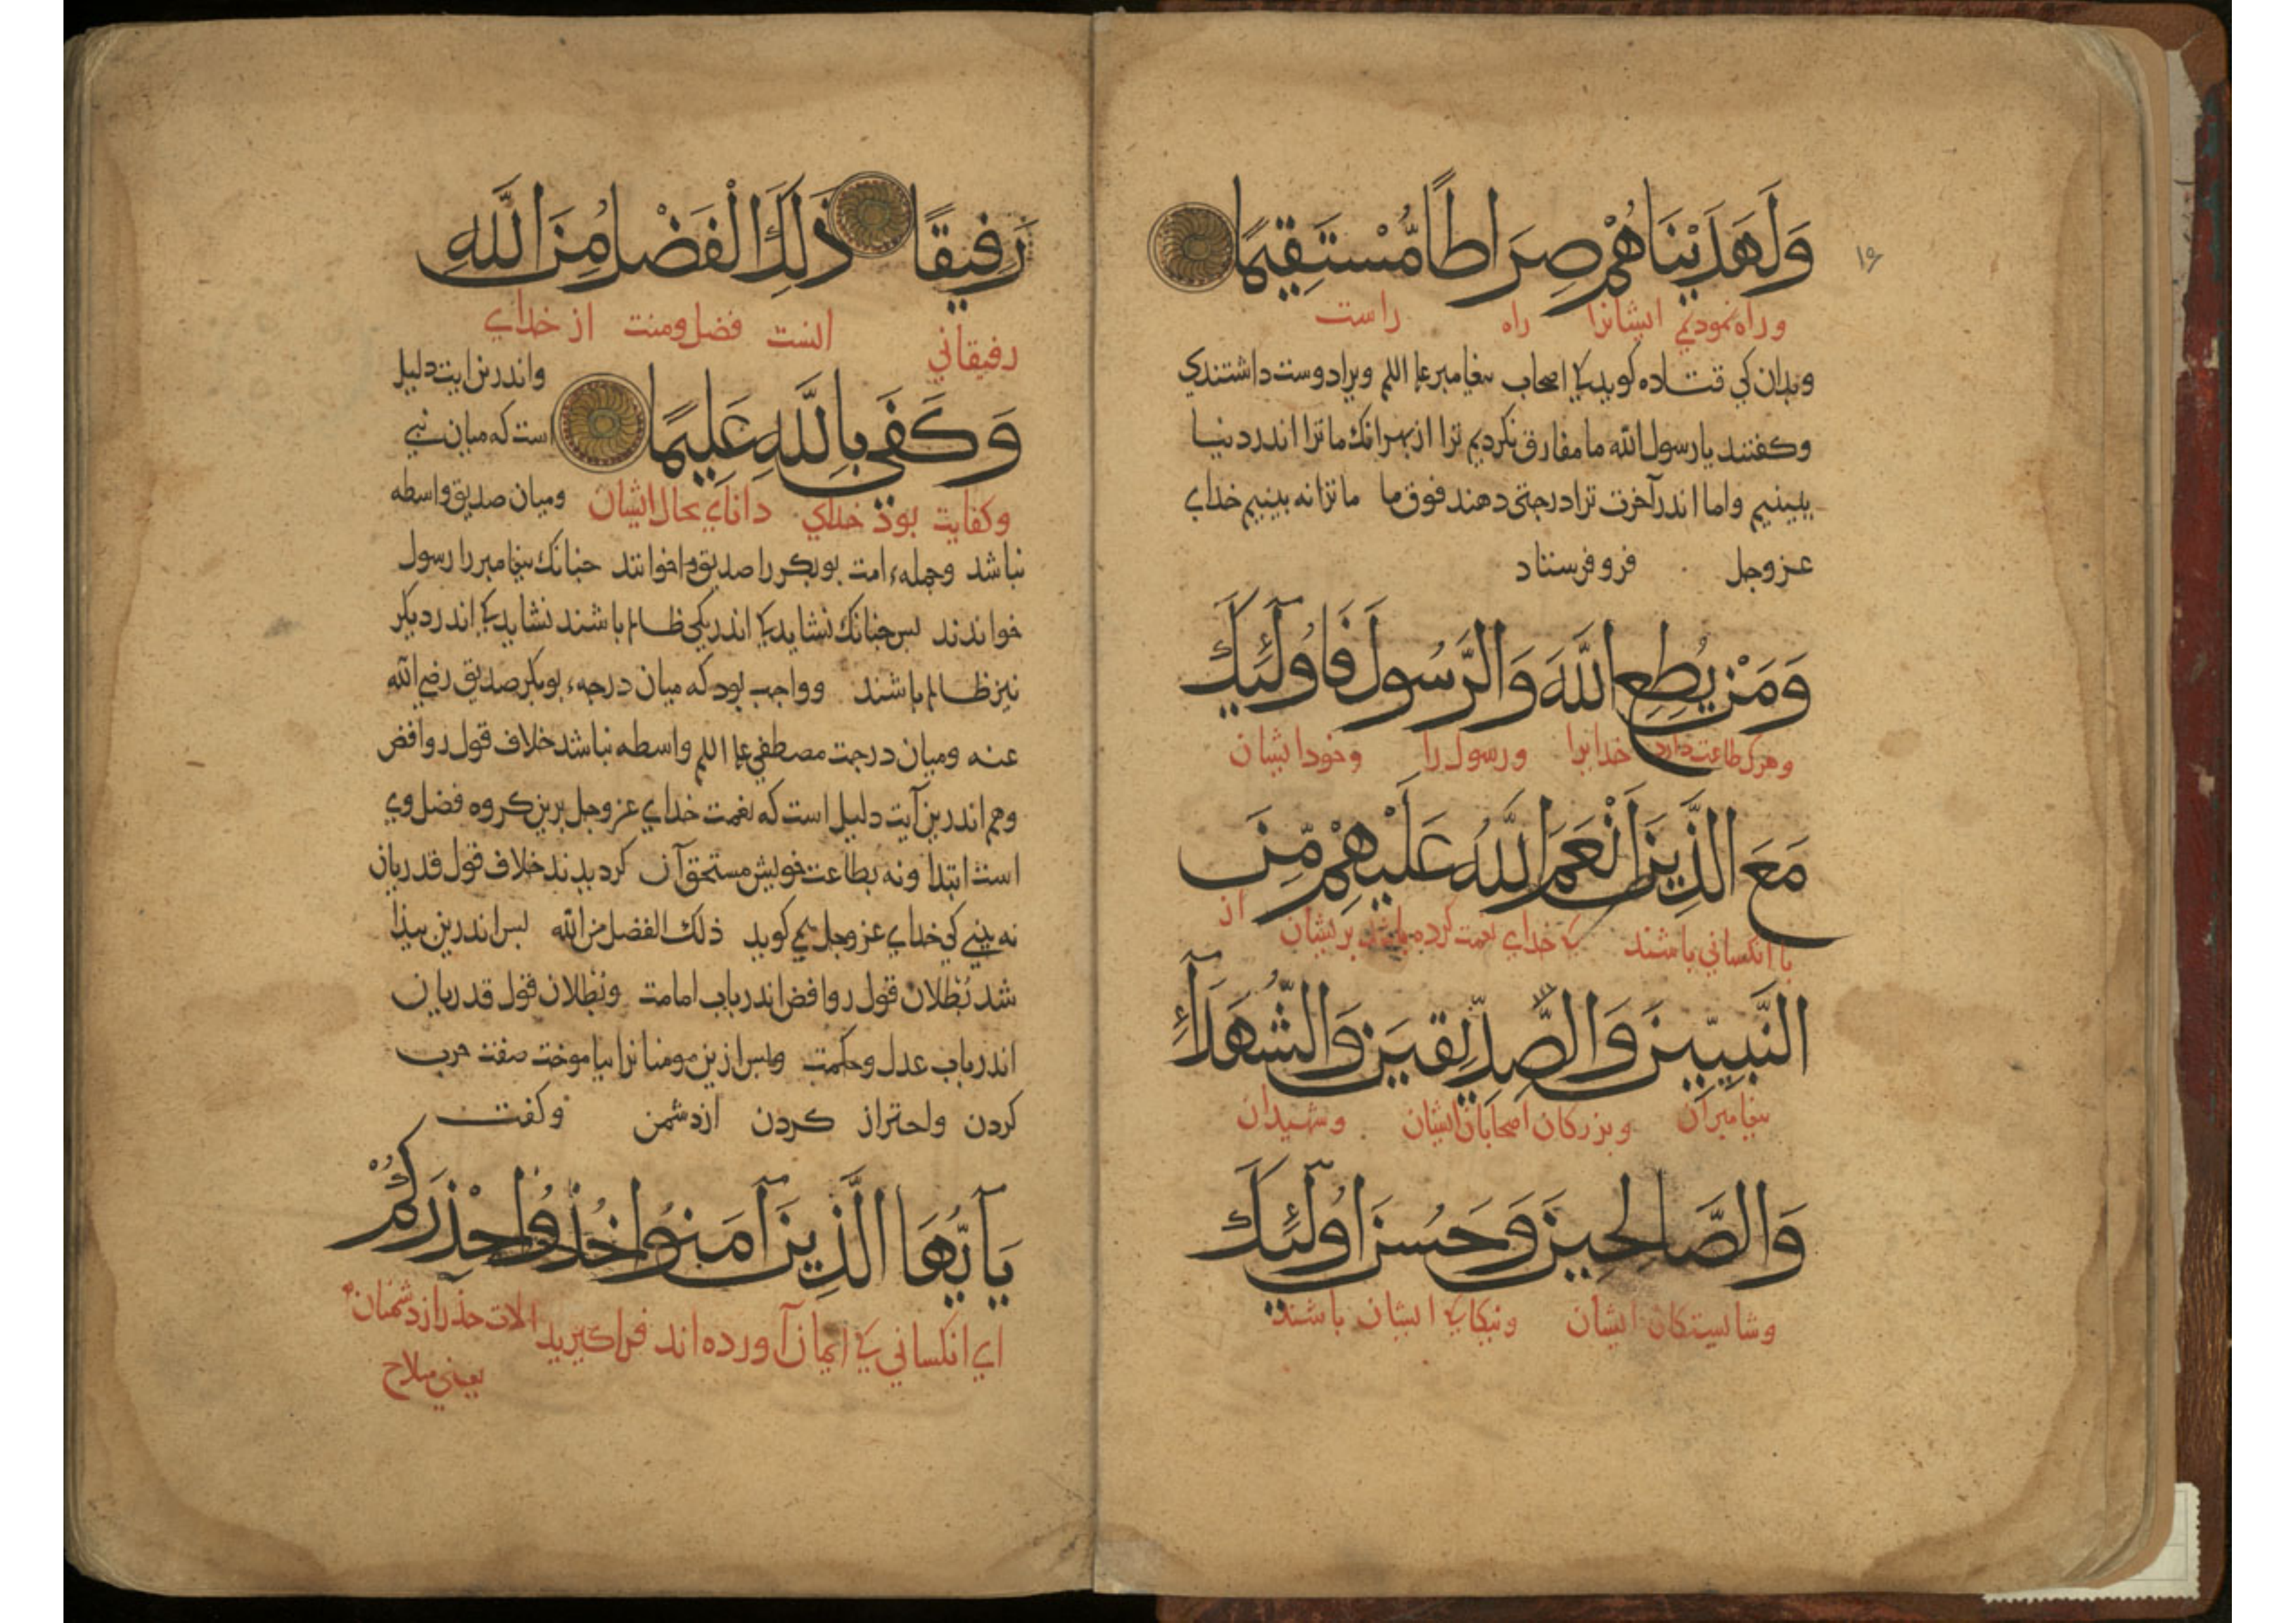 ۱۶
وَلَهَدَيْنَاهُمْ صِرَاطًا مُّسْتَقِيمًا
وراه نموديم ايشانرا راه راست
وبدان كي قتاده كويد كي اصحاب بيغامبر علم اللم ويرا دوست داشتندي
وكفتند يا رسول الله ما مفارق نكرديم ترا از بهر انك ما ترا اندر دنيا
ببينيم واما اندر آخرت ترا درجتي دهند فوق ما ما ترا نه بينيم خداي
عزوجل فرو فرستاد
وَمَنْ يُطِعِ اللَّهَ وَالرَّسُولَ فَاُولَٓئِكَ
وهرك طاعت دارد خدايرا ورسول را وخود ايشان
مَعَ الَّذِينَ اَنْعَمَ اللَّهُ عَلَيْهِمْ مِّنَ
با انكساني باشند كي خداي نعمت كرده بر ايشان از
النَّبِيِّينَ وَالصِّدِّيقِينَ وَالشُّهَدَآءِ
بيغامبران وبزركان اصحابان ايشان وشهيدان
وَالصَّالِحِينَ وَحَسُنَ اُولَٓئِكَ
وشايستكان ايشان ونيكا كي ايشان باشند
رَفِيقًا ذَلِكَ الْفَضْلُ مِنَ اللَّهِ
رفيقاني اينست فضل ومنت از خداي
واندرين ايت دليل
وَكَفَى بِاللَّهِ عَلِيمًا
است كه ميان نبي
وكفايت بوذ خداي داناي بحال ايشان
وميان صديق واسطه
نباشد وجمله امت بوبكر را صديق خواندند جنانك بيغامبر را رسول
خواندند بس جنانك نشايد كي اندر يكي ظالم باشند نشايد كي اندر ديكر
نيز ظالم باشند وواجب بود كه ميان درجه بوبكر صديق رضي الله
عنه وميان درجت مصطفي علم اللم واسطه نباشد خلاف قول روافض
وهم اندرين آيت دليل است كه نعمت خداي عزوجل برين كروه فضل وي
است ابتدا ونه بطاعت خويش مستحق آن كرديدند خلاف قول قدريان
نه بيني كي خداي عزوجل مي كويد ذلك الفضل من الله بس اندرين بيذا
شد بُطلان قول روافض اندر باب امامت وبُطلان قول قدريان
اندر باب عدل وحكمت وبس ازين مومنانرا بياموخت صفت حرب
كردن واحتراز كردن ازدشمن وكفت
يَآ اَيُّهَا الَّذِينَ آمَنُوا خُذُوا حِذْرَكُمْ
اي انكساني كي ايمان آورده اند فرا كيريد الات حذر از دشمنان
يعني سلاح